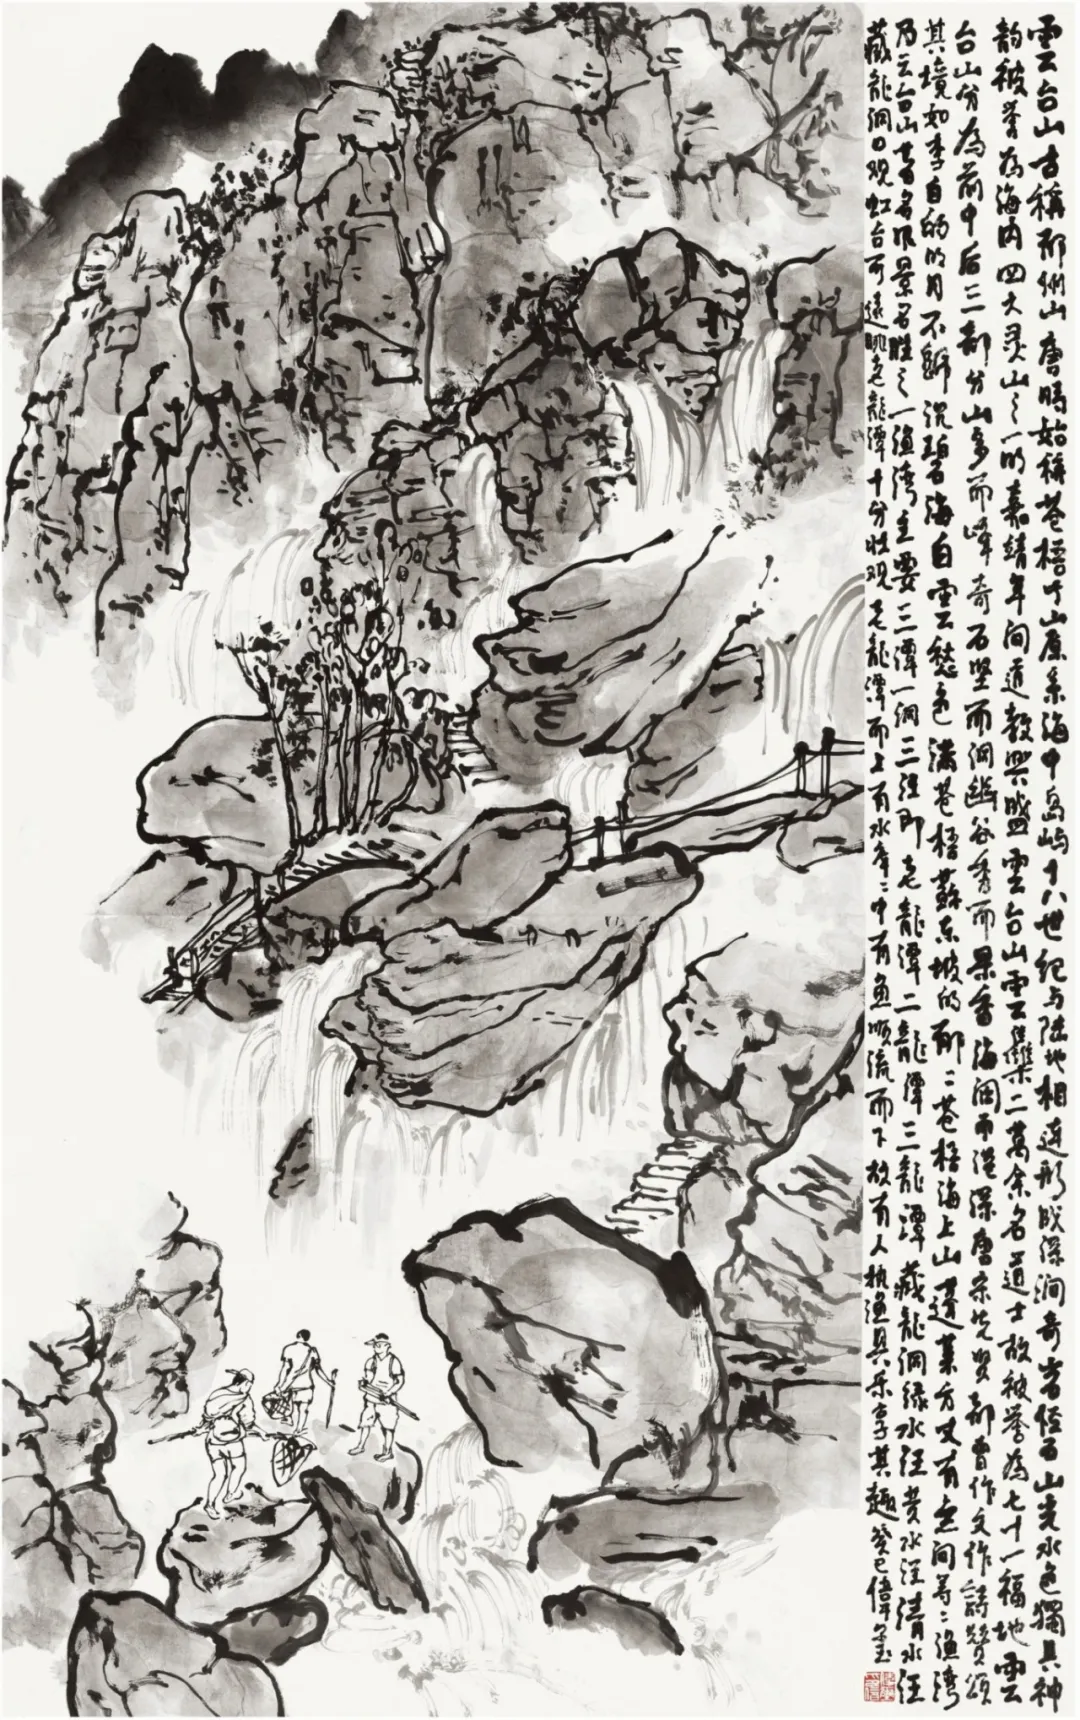 雲台山古稱郁州山唐時始稱蒼梧山原系海中島嶼十八世紀与陆地相连形成深涧奇岩怪石山光水色獨具神
韵被誉为海内四大灵山之一明嘉靖年间道教興盛雲台山雲集二萬余名道士故被誉為七十一福地雲
台山分為前中后三部分山多而峰奇石坚而洞幽谷秀而景香海阔而港深唐宋先贤都曾作文作詩赞颂
其境如李白的明月不歸沉碧海白雲愁色滿蒼梧蘇东坡的郁二蒼梧海上山蓬萊方丈有无间等二漁湾
乃云台山著名風景名胜之一漁湾主要三潭一洞三汪即老龍潭二龍潭三龍潭藏龍洞绿水汪黄水汪清水汪
藏龍洞口观虹台可遠眺老龍潭十分壮观老龍潭而上有水库二中有鱼顺流而下故有人执渔具乐享其趣 癸巳